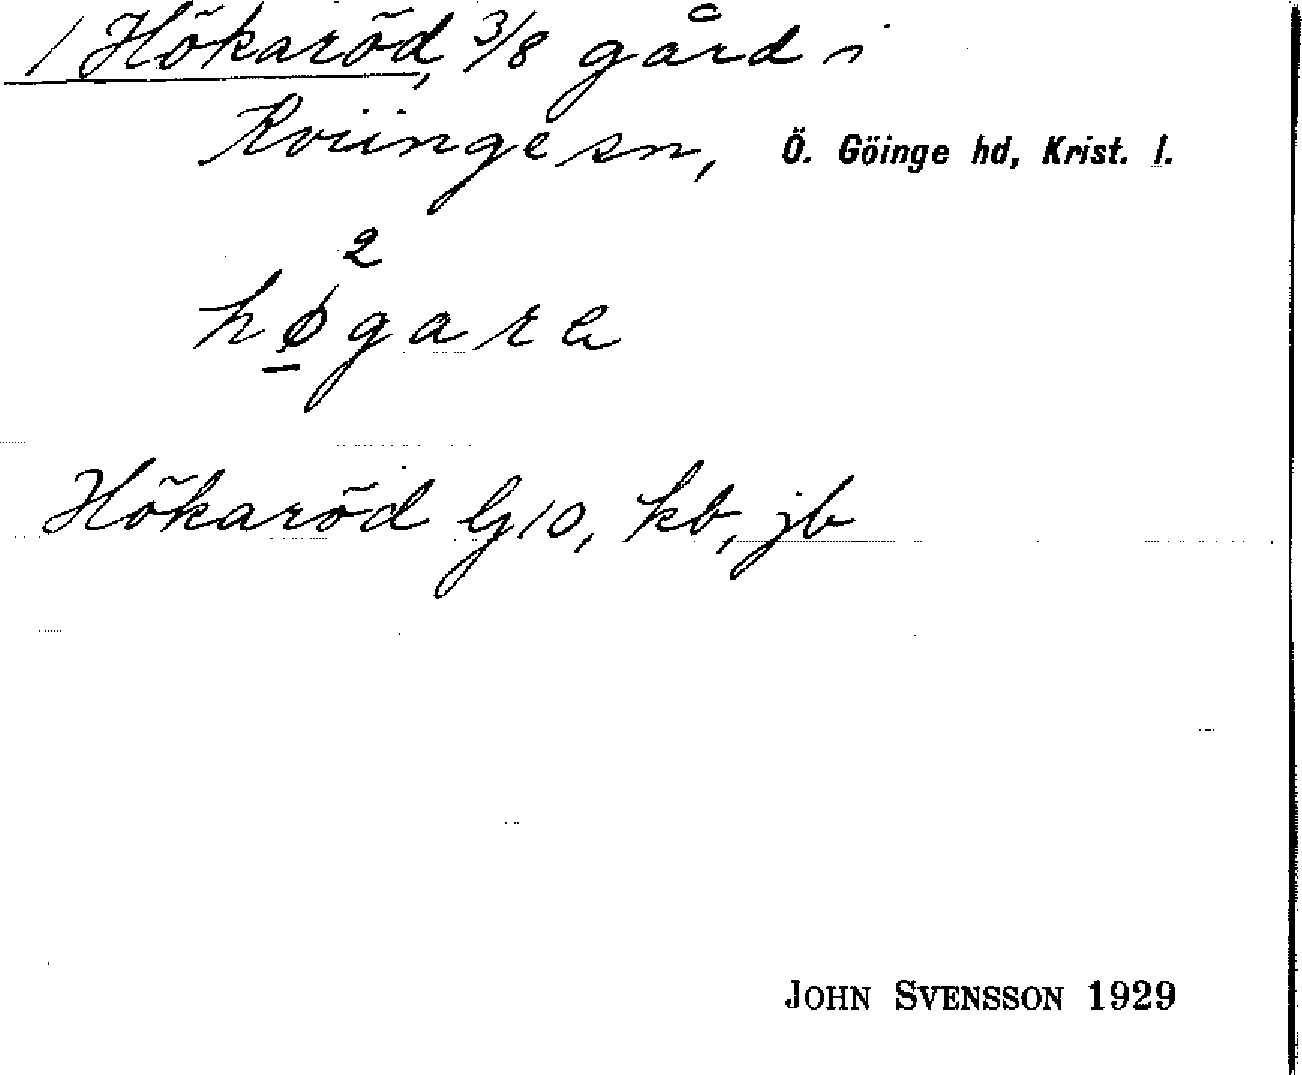 1 Hökaröd, 3/8 gård i
Kviinge sn, Ö. Göinge hd, Krist. l.
2
høgara
Hökaröd G10, kb, jb
JOHN SVENSSON 1929